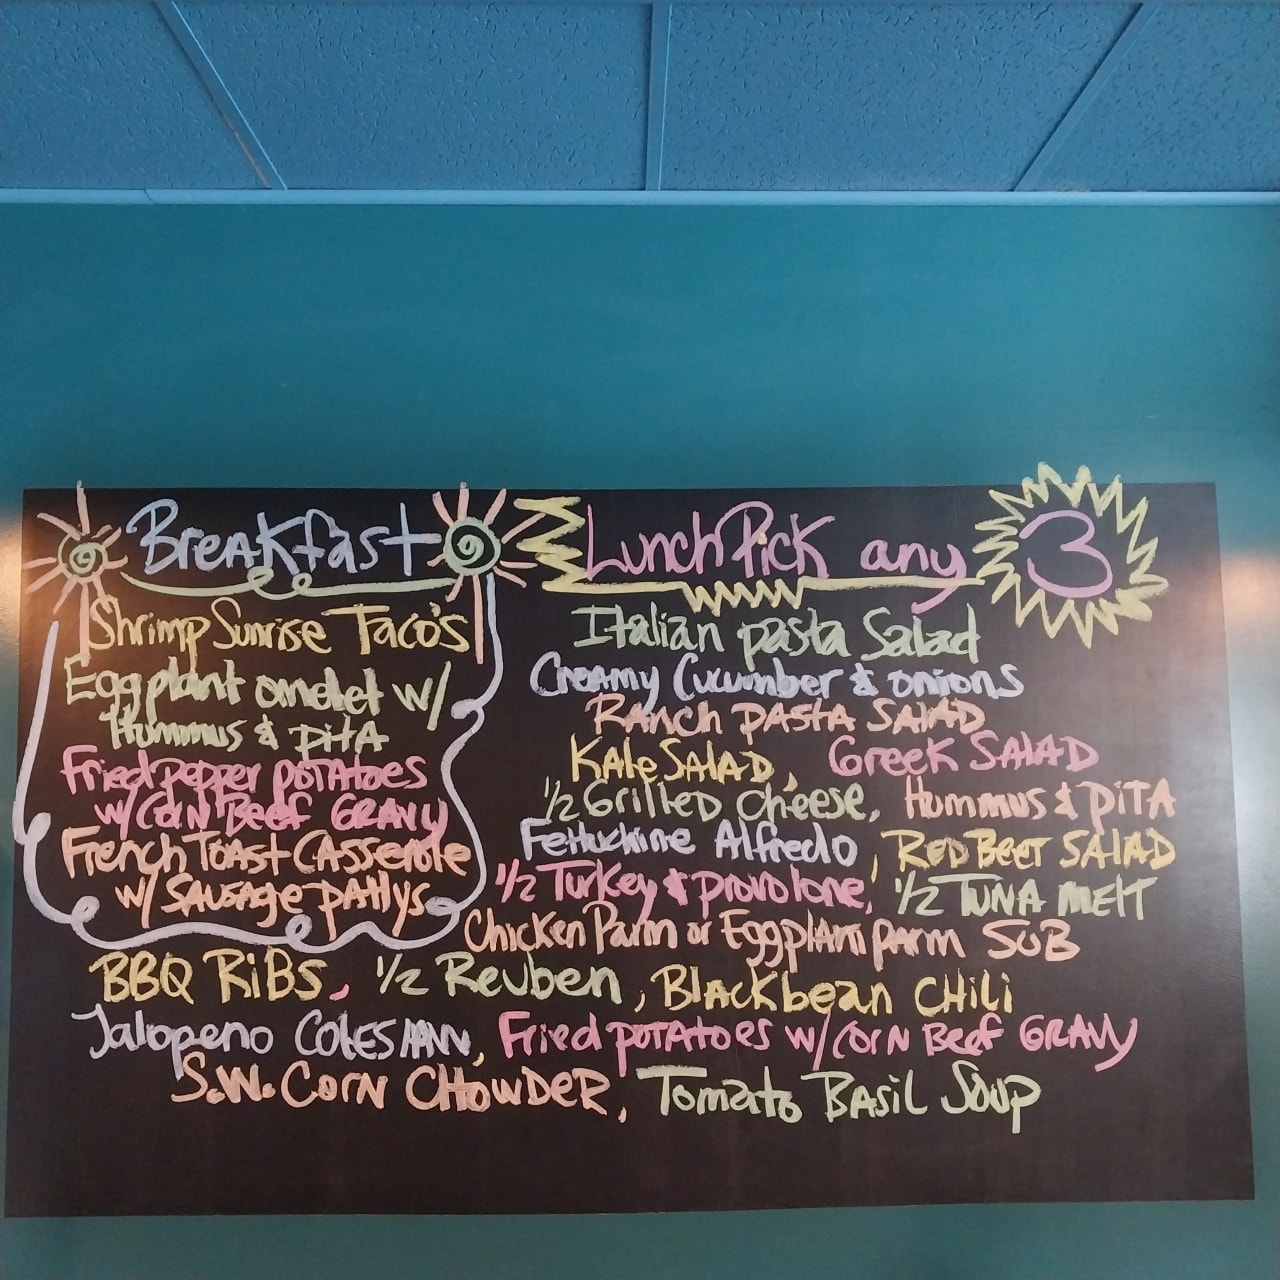 Breakfast
Shrimp Sunrise Taco's
Eggplant omelet w/
Hummus & pita
Fried pepper potatoes
w/ Corn Beef Gravy
French Toast Casserole
w/ Sausage pattys
Lunch Pick any 3
Italian pasta Salad
Creamy Cucumber & onions
Ranch pasta Salad
Kale Salad, Greek Salad
1/2 Grilled cheese, Hummus & pita
Fettuchine Alfredo, Red Beet Salad
1/2 Turkey & provolone, 1/2 Tuna melt
Chicken Parm or Eggplant parm Sub
BBQ Ribs, 1/2 Reuben, Blackbean Chili
Jalopeno Coleslaw, Fried potatoes w/ Corn Beef Gravy
S.W. Corn Chowder, Tomato Basil Soup